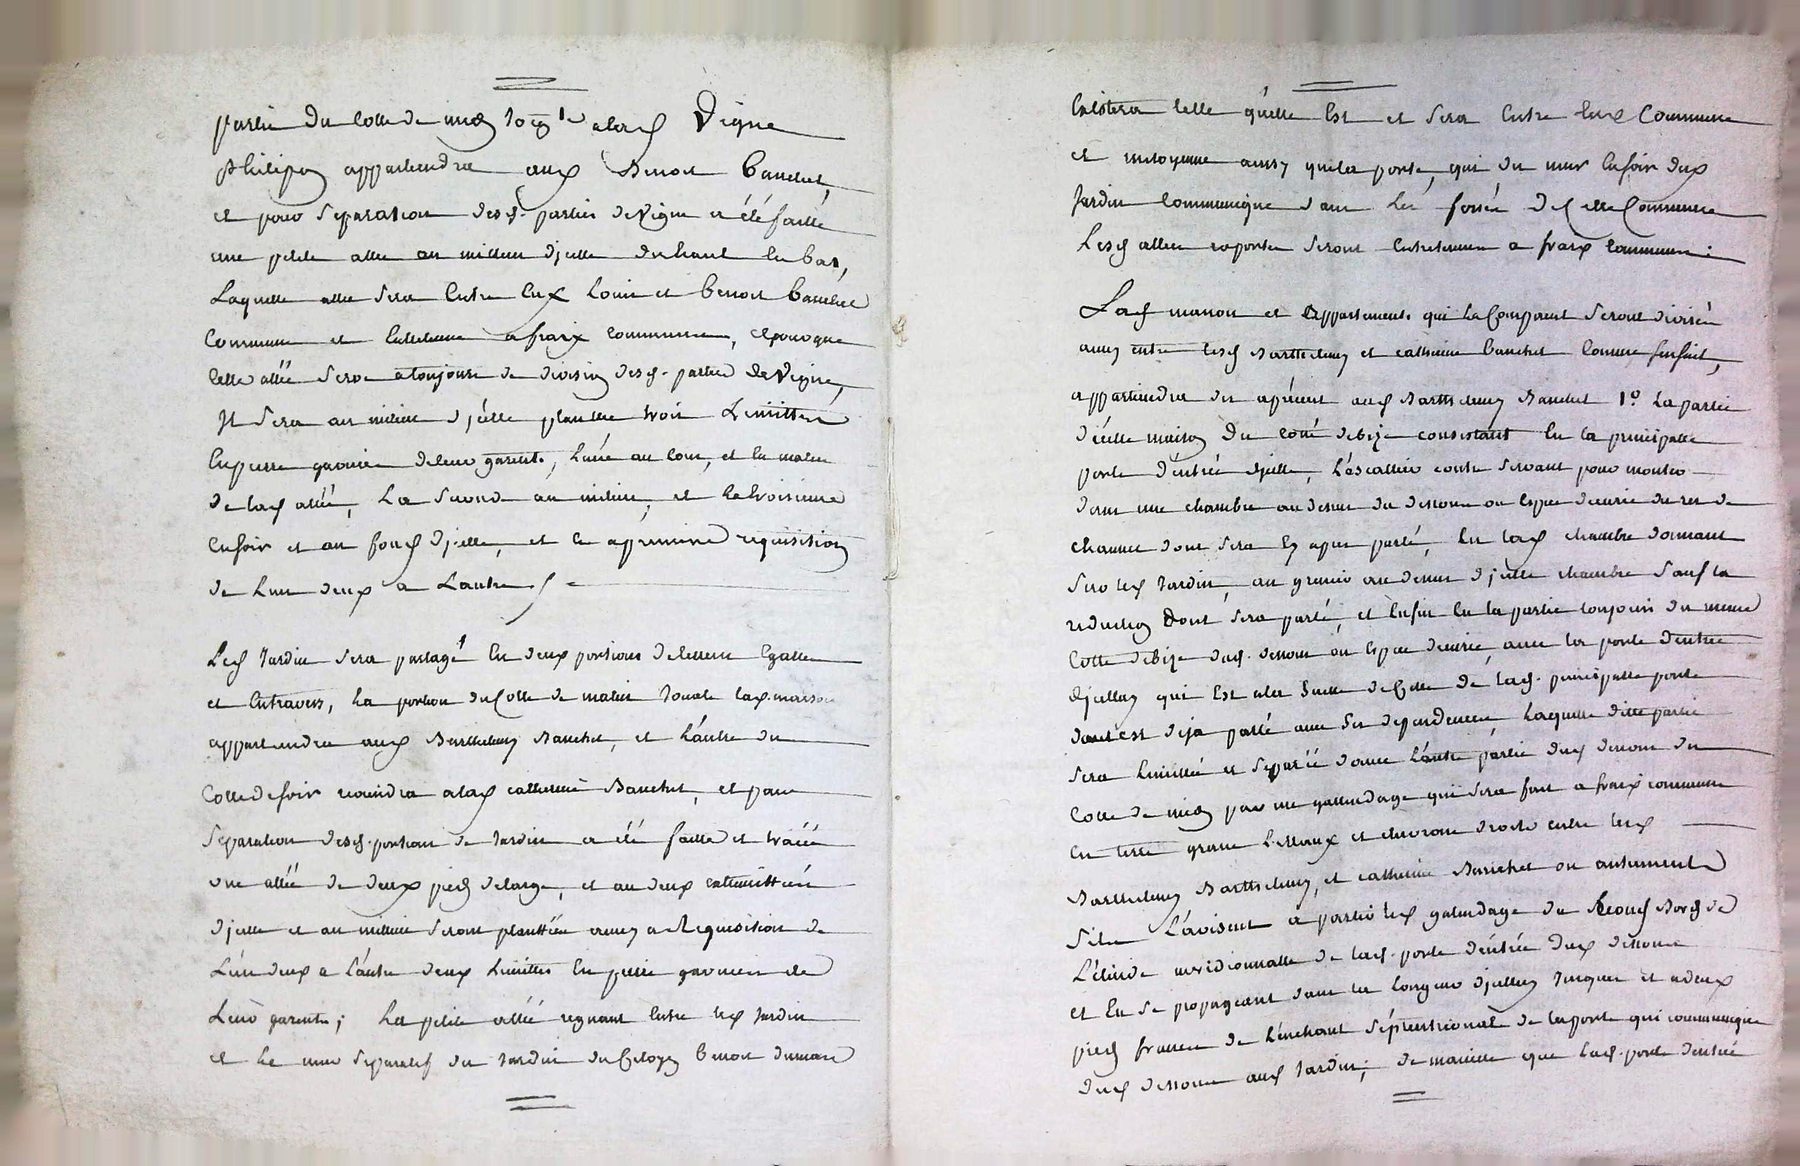 partie du cotté de midy joig.te alad. Vigne
philipon appartiendra aud. Benoit bauchet,
et pour Separation desd. parties de Vigne a été faitte
une petite allée au millieu d'jcelle du haut en bas,
Laquelle allée sera Entre Eux Louis et benoit bauchet
Commune et Entretenue a fraix communs, et pour que
Cette allée serve a toujours de division desd. parties de Vigne,
Jl sera au milieu d'jcelle plantée trois Limittes
En pierre garnies de leurs garents, L'une au Coin, et En matin
de lad. allée, La seconde au milieu, et la troisieme
En soir et au fond d'jcelle, et a la premiere requisition
de L'un deux a L'autre
Led. Jardin sera partagé En deux portions de Terrein Egalles
et En travers, La portion du Cotté de matin Joute lad. maison
appartiendra aud. Barthelemy Bauchet, et L'autre du
Cotté de soir viendra a lad. catherine Bauchet, et pour
Séparation desd. portions de Jardin a été faitte et tracée
une allée de deux pieds de large, et au deux extremittés
d'jcelle et au millieu seront plantées a la Requisition de
L'un deux a L'autre deux Limittes En pierre garnies de
Leurs garents; La petite allée regnant Entre led. Jardin
et Le mur separatif du Jardin du Citoyen benoit dumas
Existera telle qu'elle Est et sera Entre Eux Commune
et mitoyenne ainsy que la porte, qui du mur En soir dud.
Jardin Communique dans Les fossés de Cette Commune
Lesd. allées et portes seront Entretenues a fraix communs.
Lad. maison et appartements qui La Composent seront divisés
ainsy entre lesd. Barthelemy et catherine bauchet Comme s'ensuit,
appartiendra des a présent aud. Barthelemy Bauchet 1.o La partie
d'jcelle maison du cotté de bize consistant En la principalle
porte d'entrée d'jcelle, L'éscallier contre servant pour monter
dans une chambre au dessus du dessous ou Espece d'ecurie du rez de
chaussée dont sera Cy apres parlé, En lad. chambre donnant
sur led. Jardin, au grenier au dessus d'jcelle chambre sauf la
reduction dont sera parlé, et Enfin En la partie toujours du meme
Cotté de bize dud. dessous ou Espece d'ecurie, avec la porte d'entrée
d'jcelluy qui Est a la suitte de Celle de lad. principalle porte
dont est deja parlé avec ses dependances, Laquelle ditte partie
sera Limittée et separée d'avec L'autre partie dud. dessous du
Cotté de midy par un gallandage qui sera fait a fraix communs
En terre grasse Litteaux et chevrons droits entre lesd.
Barthelemy, et catherine Bauchet ou autrement
S'ils L'avisent a partir led. galandage du Second Bord de
L'etendue meridionnalle de lad. porte d'entrée dud. dessous
et En se propageant dans la longueur d'jcelluy Jusques et a deux
pieds francs de L'enchant séptentrional de la porte qui communique
dud. dessous aud. Jardin; de maniere que lad. porte d'entrée